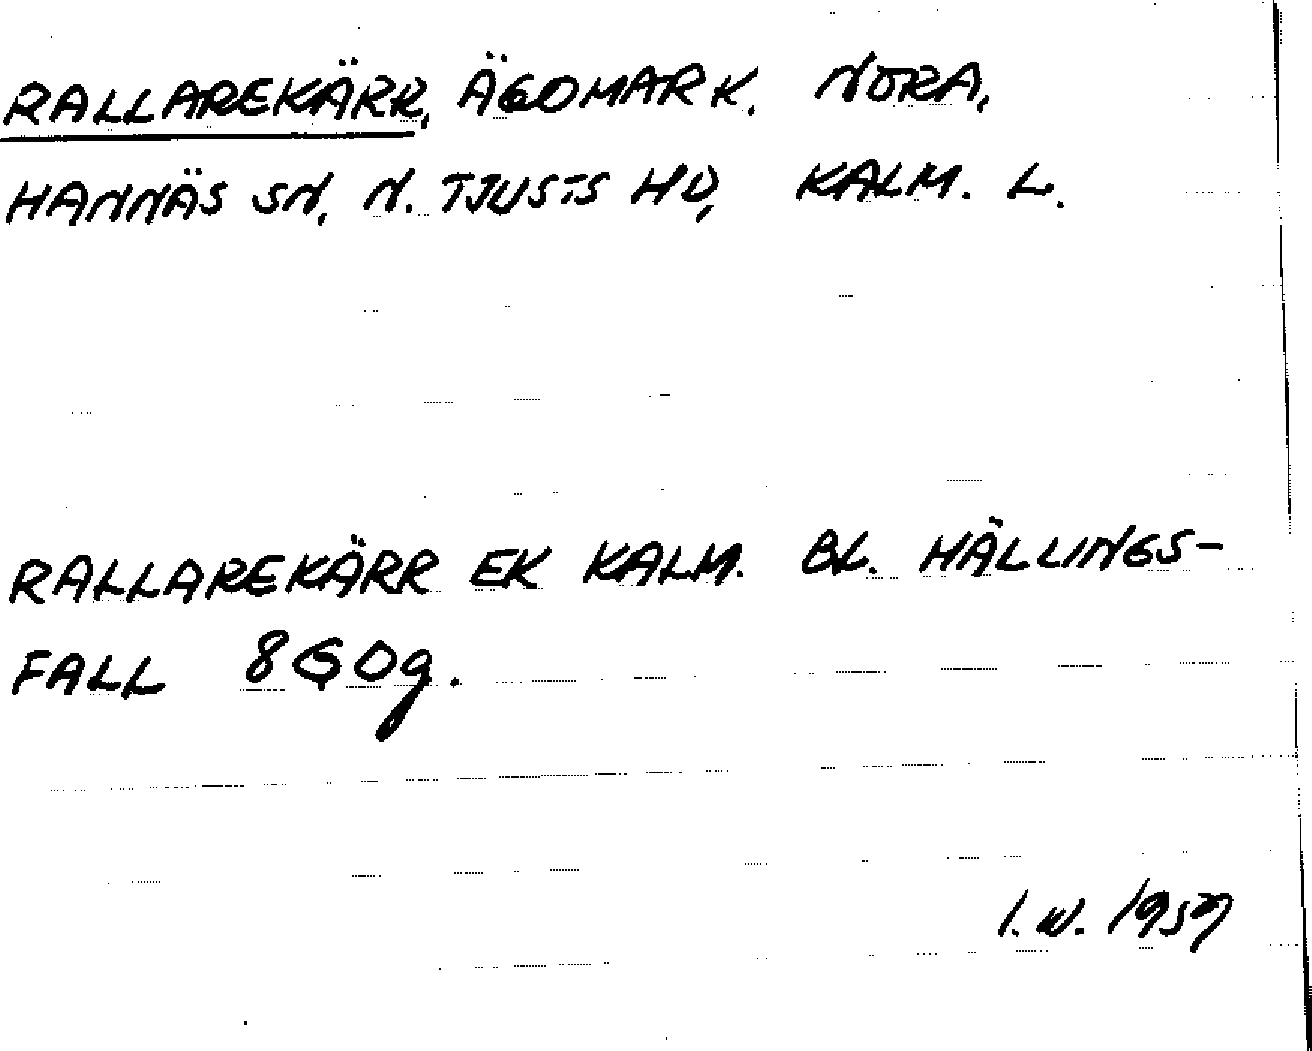 RALLAREKÄRR, ÄGOMARK. NORA,
HANNÄS SN, N. TJUSTS HD, KALM. L.
RALLAREKÄRR EK KALM. BL. HÄLLINGS-
FALL 8G0g.
I. W. 1957